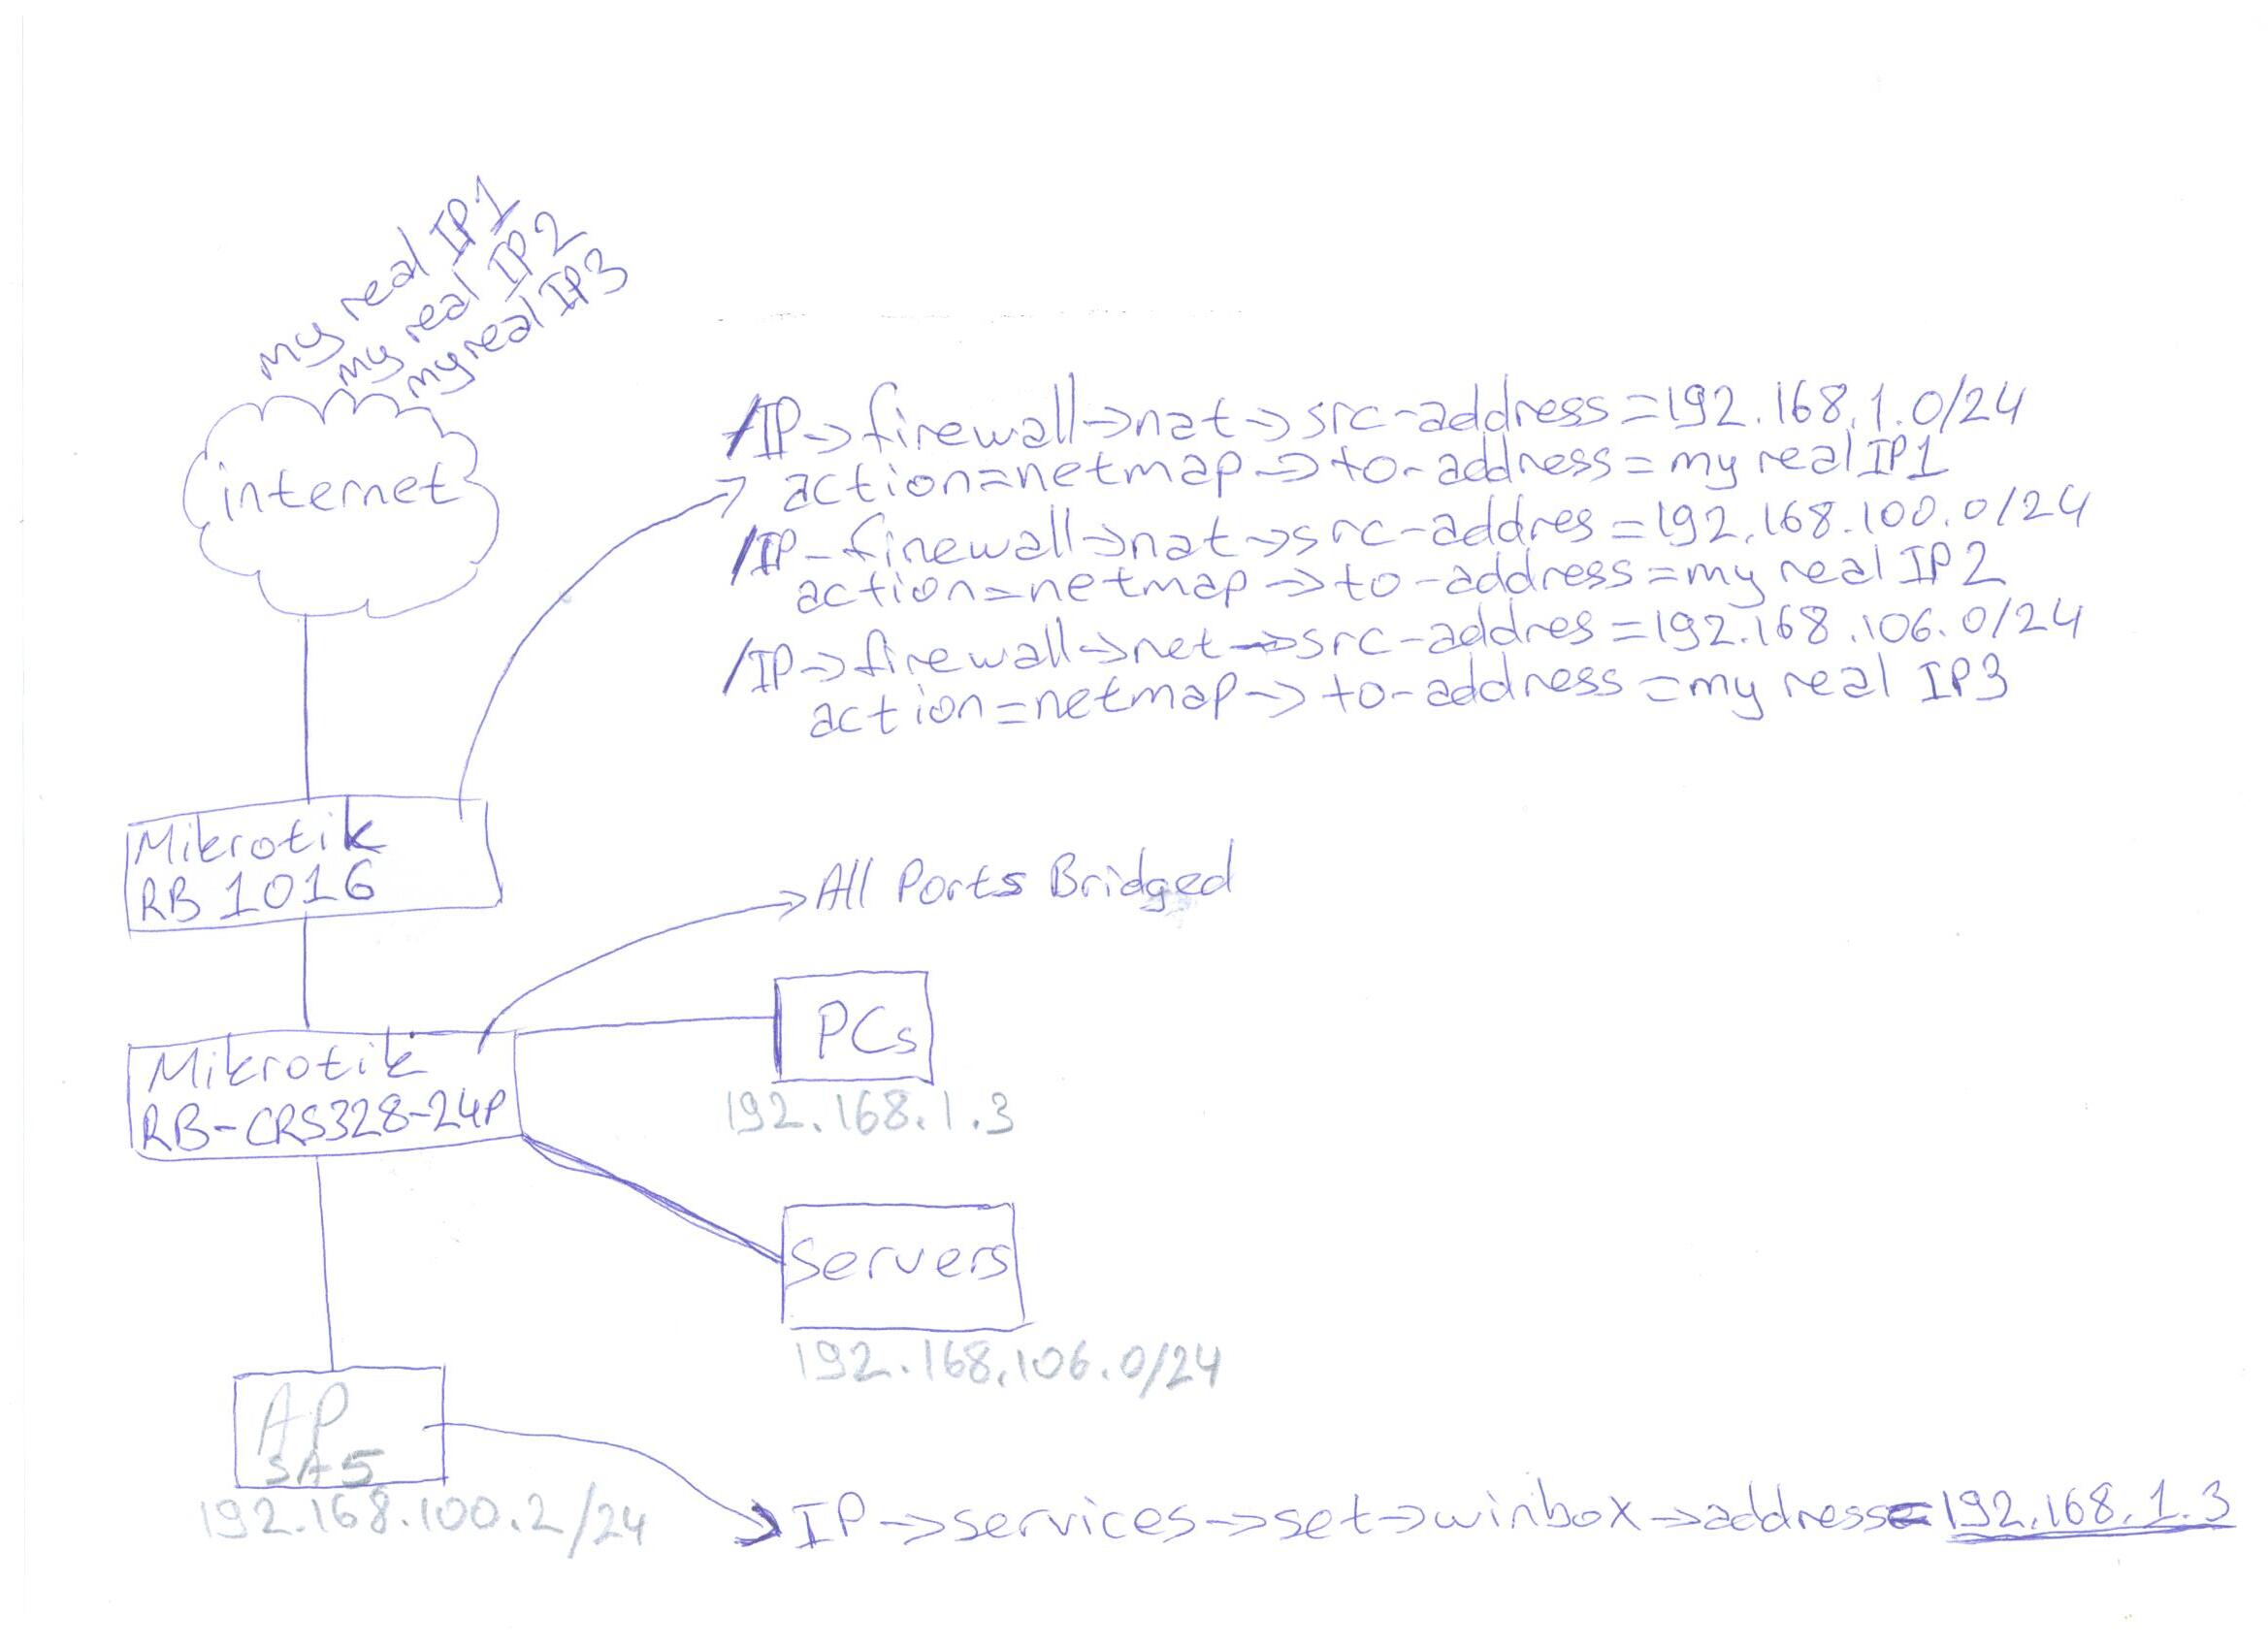 my real IP1
my real IP2
my real IP3
internet
/IP->firewall->nat->src-address=192.168.1.0/24
action=netmap->to-address=my real IP1
/IP-firewall->nat->src-addres=192.168.100.0/24
action=netmap->to-address=my real IP2
/IP->firewall->net->src-addres=192.168.106.0/24
action=netmap->to-address=my real IP3
Mikrotik
RB 1016
All Ports Bridged
PCs
192.168.1.3
Mikrotik
RB-CRS328-24P
Servers
192.168.106.0/24
AP
SA5
192.168.100.2/24
IP->services->set->winbox->address=192.168.1.3